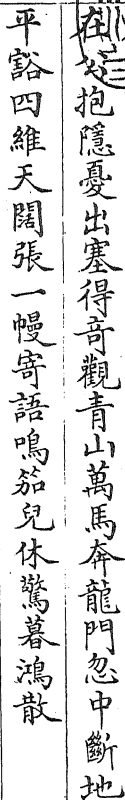 在公抱隱憂出塞得竒觀青山萬馬奔龍門忽中斷地
平豁四維天闊張一幔寄語鳴笳兒休驚暮鴻散